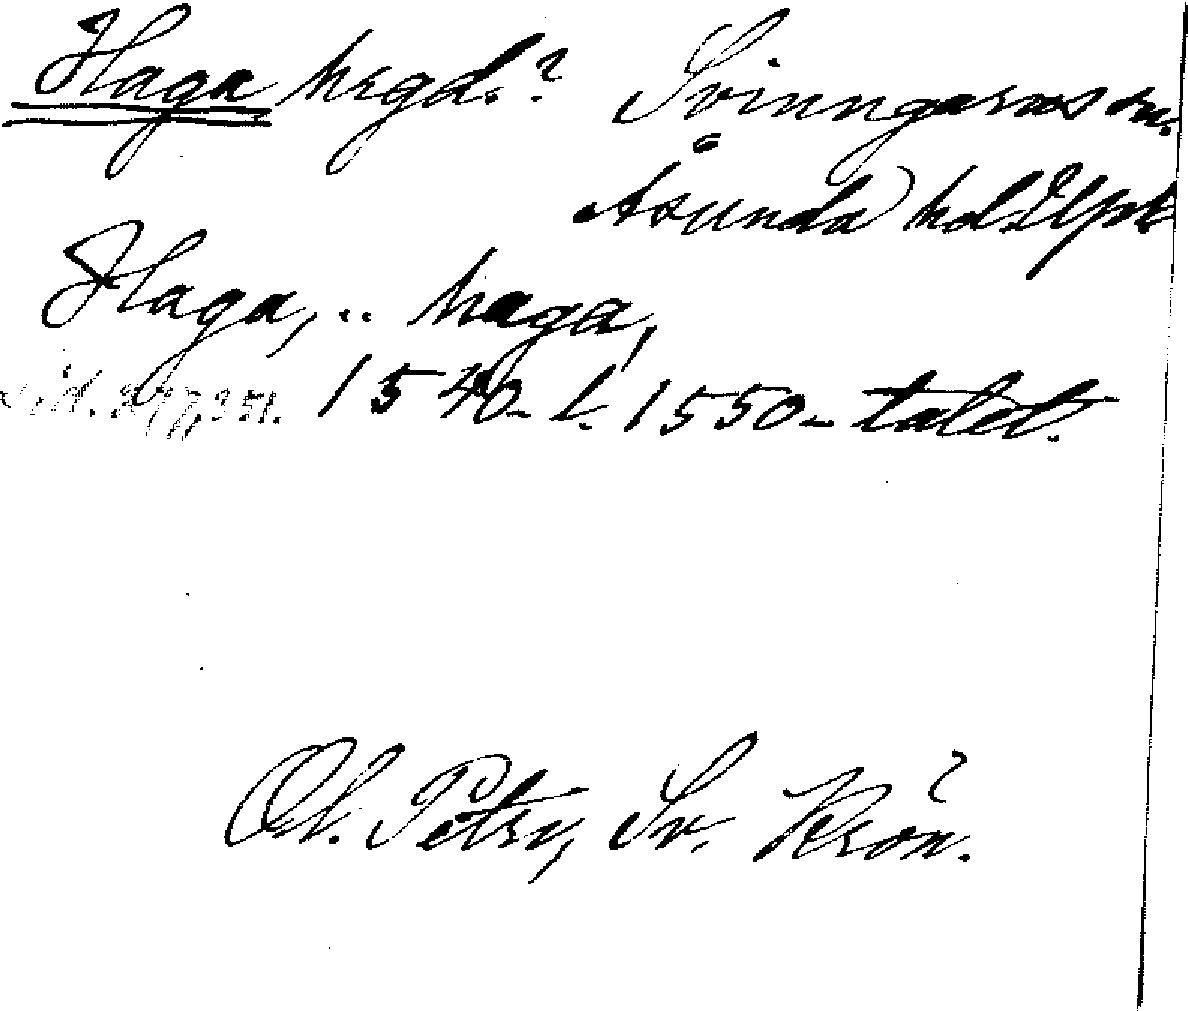 Haga hrgd.? Svinngarns sn.
Åsunda hd Upl
Haga, .. haga,
sid. 297, 351. 1540- l. 1550-talet.
Ol. Petry, Sv. Krön.